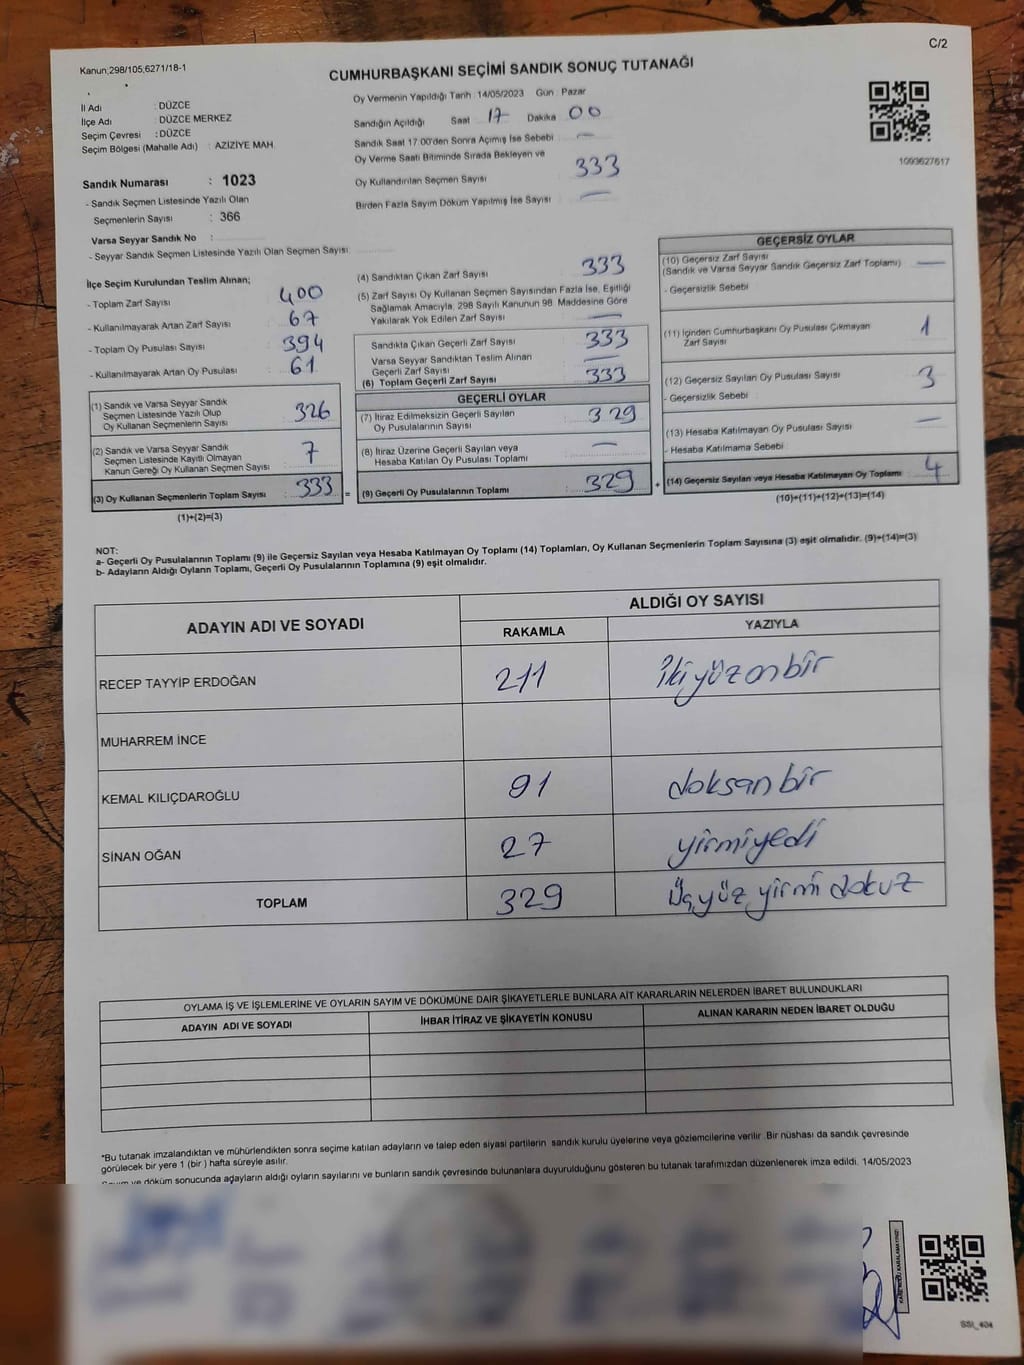 C/2
Kanun;298/105;6271/18-1
CUMHURBAŞKANI SEÇİMİ SANDIK SONUÇ TUTANAĞI
İl Adı : DÜZCE
İlçe Adı : DÜZCE MERKEZ
Seçim Çevresi : DÜZCE
Seçim Bölgesi (Mahalle Adı) : AZİZİYE MAH.
Oy Vermenin Yapıldığı Tarih : 14/05/2023 Gün : Pazar
Sandığın Açıldığı Saat 17 Dakika 00
Sandık Saat 17.00'den Sonra Açımış İse Sebebi —
Oy Verme Saati Bitiminde Sırada Bekleyen ve
Oy Kullandırılan Seçmen Sayısı 333
Birden Fazla Sayım Döküm Yapılmış İse Sayısı —
1093627617
Sandık Numarası : 1023
- Sandık Seçmen Listesinde Yazılı Olan
Seçmenlerin Sayısı : 366
Varsa Seyyar Sandık No :
- Seyyar Sandık Seçmen Listesinde Yazılı Olan Seçmen Sayısı:
İlçe Seçim Kurulundan Teslim Alınan;
- Toplam Zarf Sayısı 400
- Kullanılmayarak Artan Zarf Sayısı 67
- Toplam Oy Pusulası Sayısı 394
- Kullanılmayarak Artan Oy Pusulası 61
(1) Sandık ve Varsa Seyyar Sandık
Seçmen Listesinde Yazılı Olup
Oy Kullanan Seçmenlerin Sayısı 326
(2) Sandık ve Varsa Seyyar Sandık
Seçmen Listesinde Kayıtlı Olmayan
Kanun Gereği Oy Kullanan Seçmen Sayısı 7
(3) Oy Kullanan Seçmenlerin Toplam Sayısı 333 =
(1)+(2)=(3)
(4) Sandıktan Çıkan Zarf Sayısı 333
(5) Zarf Sayısı Oy Kullanan Seçmen Sayısından Fazla İse, Eşitliği
Sağlamak Amacıyla, 298 Sayılı Kanunun 98. Maddesine Göre
Yakılarak Yok Edilen Zarf Sayısı —
Sandıkta Çıkan Geçerli Zarf Sayısı 333
Varsa Seyyar Sandıktan Teslim Alınan
Geçerli Zarf Sayısı —
(6) Toplam Geçerli Zarf Sayısı 333
GEÇERLİ OYLAR
(7) İtiraz Edilmeksizin Geçerli Sayılan
Oy Pusulalarının Sayısı 329
(8) İtiraz Üzerine Geçerli Sayılan veya
Hesaba Katılan Oy Pusulası Toplamı —
(9) Geçerli Oy Pusulalarının Toplamı 329 +
GEÇERSİZ OYLAR
(10) Geçersiz Zarf Sayısı
(Sandık ve Varsa Seyyar Sandık Geçersiz Zarf Toplamı) —
- Geçersizlik Sebebi
(11) İçinden Cumhurbaşkanı Oy Pusulası Çıkmayan
Zarf Sayısı 1
(12) Geçersiz Sayılan Oy Pusulası Sayısı 3
- Geçersizlik Sebebi
(13) Hesaba Katılmayan Oy Pusulası Sayısı —
- Hesaba Katılmama Sebebi
(14) Geçersiz Sayılan veya Hesaba Katılmayan Oy Toplamı 4
(10)+(11)+(12)+(13)=(14)
NOT:
a- Geçerli Oy Pusulalarının Toplamı (9) ile Geçersiz Sayılan veya Hesaba Katılmayan Oy Toplamı (14) Toplamları, Oy Kullanan Seçmenlerin Toplam Sayısına (3) eşit olmalıdır. (9)+(14)=(3)
b- Adayların Aldığı Oyların Toplamı, Geçerli Oy Pusulalarının Toplamına (9) eşit olmalıdır.
ADAYIN ADI VE SOYADI ALDIĞI OY SAYISI
RAKAMLA YAZIYLA
RECEP TAYYİP ERDOĞAN 211 İkiyüzonbir
MUHARREM İNCE
KEMAL KILIÇDAROĞLU 91 doksanbir
SİNAN OĞAN 27 yirmiyedi
TOPLAM 329 Üçyüz yirmi dokuz
OYLAMA İŞ VE İŞLEMLERİNE VE OYLARIN SAYIM VE DÖKÜMÜNE DAİR ŞİKAYETLERLE BUNLARA AİT KARARLARIN NELERDEN İBARET BULUNDUKLARI
ADAYIN ADI VE SOYADI İHBAR İTİRAZ VE ŞİKAYETİN KONUSU ALINAN KARARIN NEDEN İBARET OLDUĞU
*Bu tutanak imzalandıktan ve mühürlendikten sonra seçime katılan adayların ve talep eden siyasi partilerin sandık kurulu üyelerine veya gözlemcilerine verilir. Bir nüshası da sandık çevresinde
görülecek bir yere 1 (bir) hafta süreyle asılır.
Sayım ve döküm sonucunda adayların aldığı oyların sayılarını ve bunların sandık çevresinde bulunanlara duyurulduğunu gösteren bu tutanak tarafımızdan düzenlenerek imza edildi. 14/05/2023